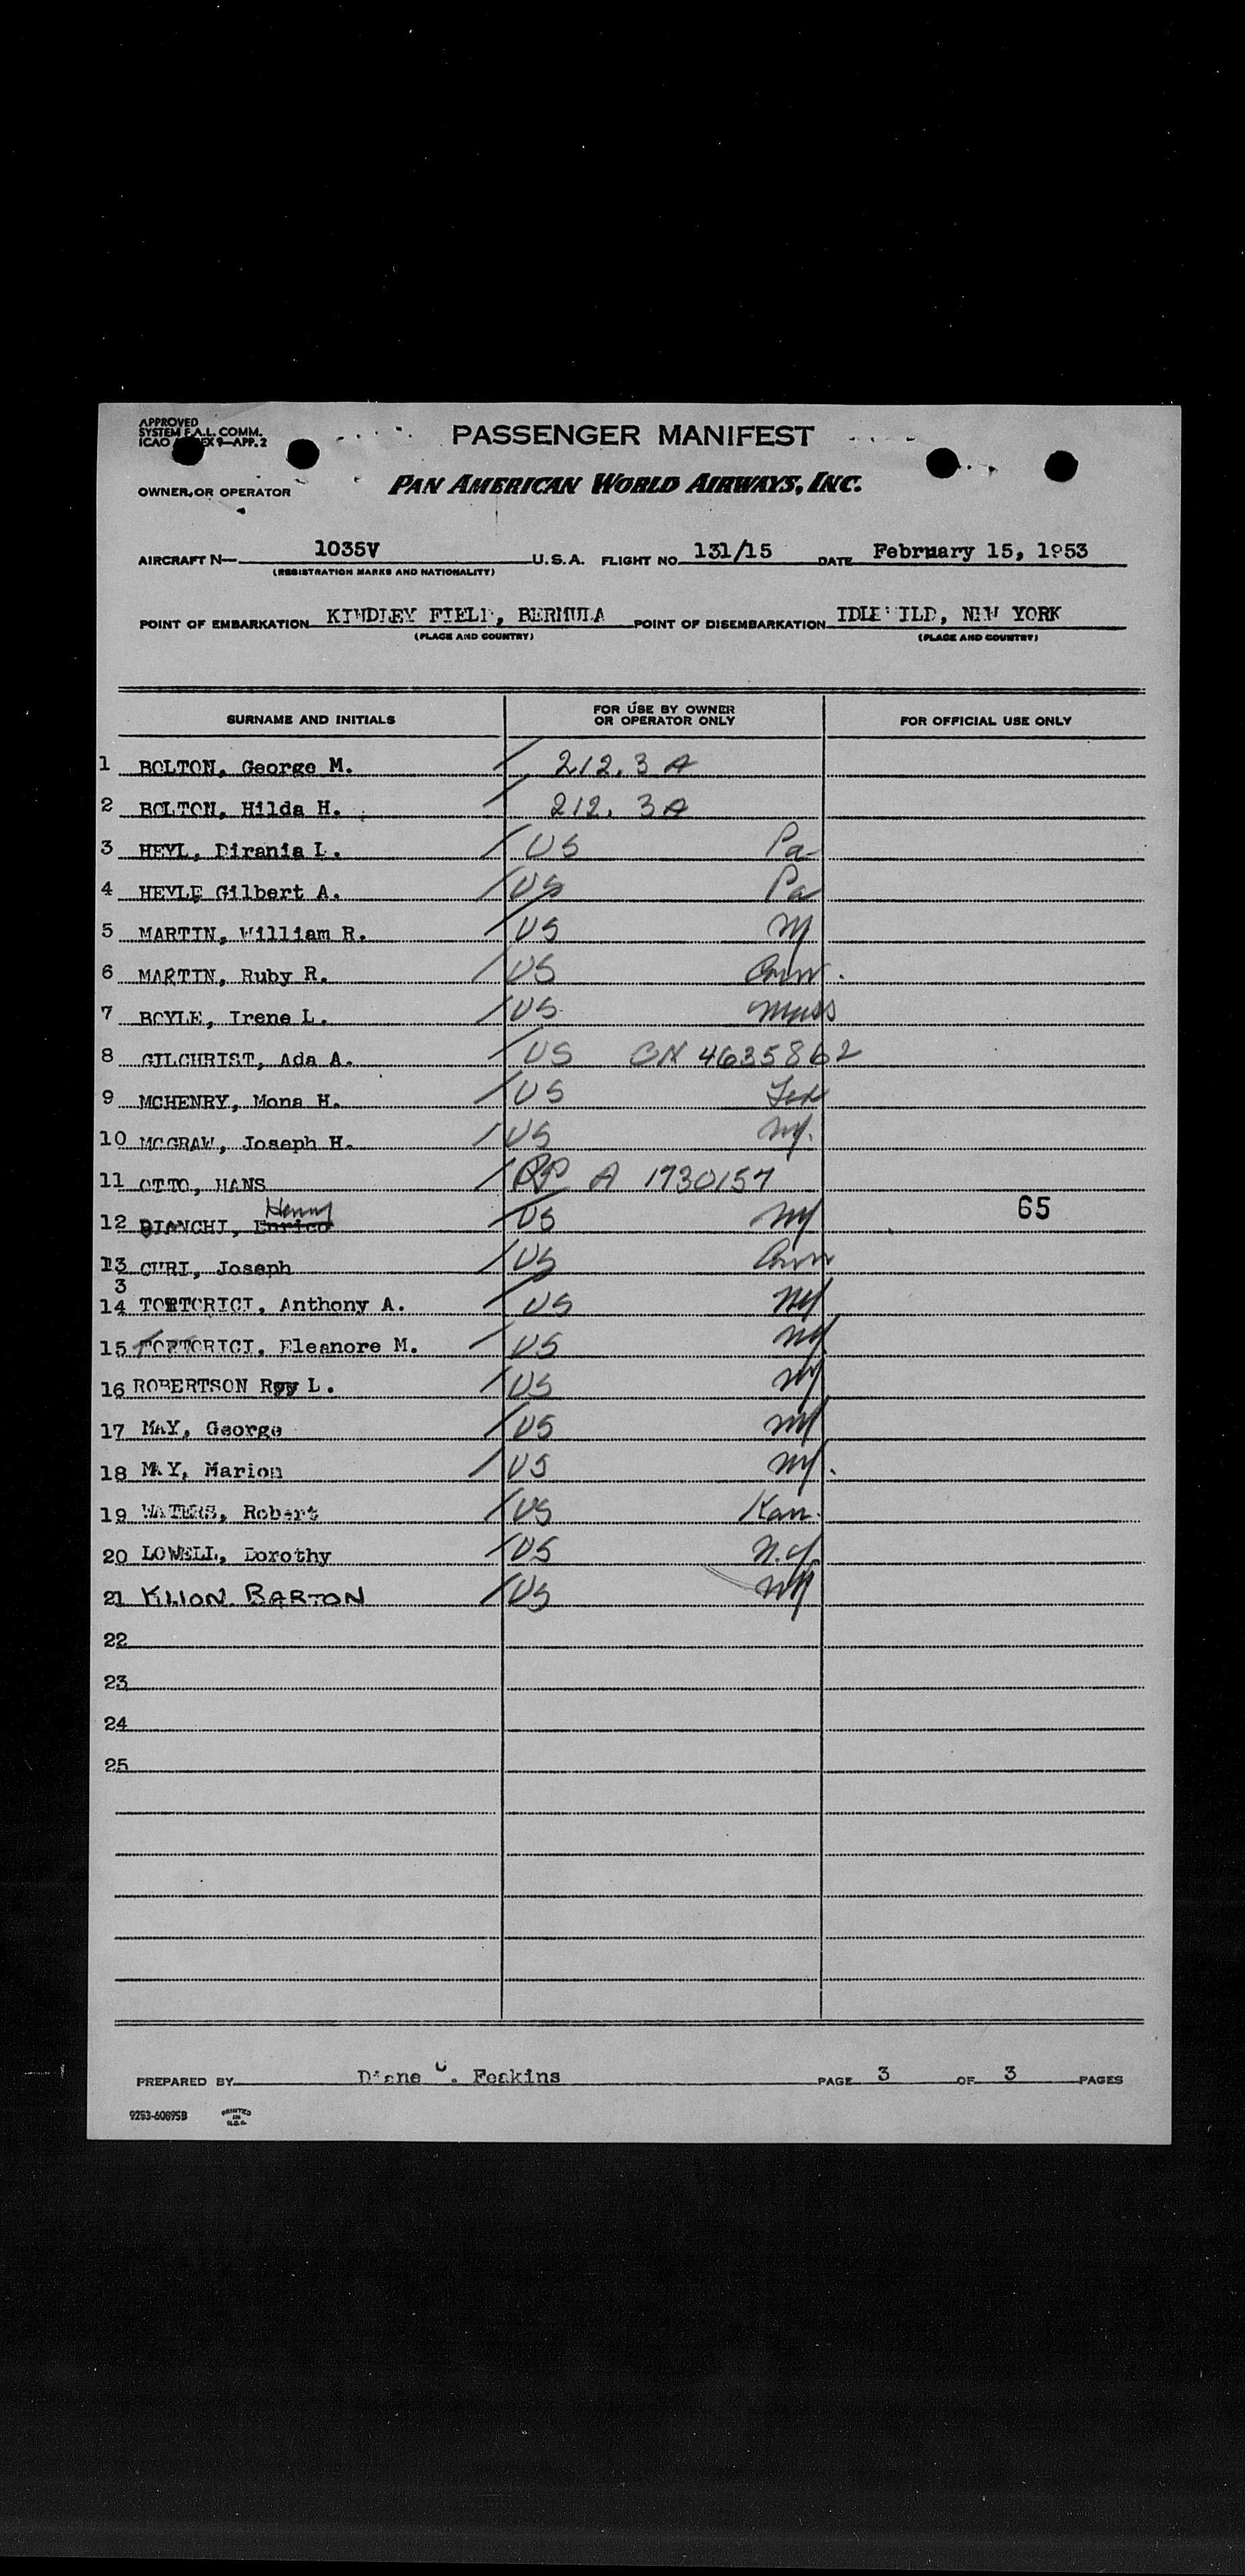 APPROVED
SYSTEM F.A.L. COMM.
ICAO EX 9—APP. 2
PASSENGER MANIFEST
OWNER OR OPERATOR PAN AMERICAN WORLD AIRWAYS, INC.
AIRCRAFT N— 1035V U.S.A. FLIGHT NO. 131/15 DATE February 15, 1953
(REGISTRATION MARKS AND NATIONALITY)
POINT OF EMBARKATION KINDLEY FIELD, BERMUDA POINT OF DISEMBARKATION IDLE ILD, NEW YORK
(PLACE AND COUNTRY) (PLACE AND COUNTRY)
SURNAME AND INITIALS FOR USE BY OWNER OR OPERATOR ONLY FOR OFFICIAL USE ONLY
1 BOLTON, George M. / 212.3 A
2 BOLTON, Hilda H. / 212. 3A
3 HEYL, Dirania L. / US Pa
4 HEYLE Gilbert A. / US Pa
5 MARTIN, William R. / US NY
6 MARTIN, Ruby R. / US Conn.
7 BOYLE, Irene L. / US Mass
8 GILCHRIST, Ada A. / US CN 4635862
9 MCHENRY, Mona H. / US
10 MCGRAW, Joseph H. / US NY.
11 OTTO, HANS / RP A 1730157
Henry
12 BIANCHI, Enrico / US NY 65
13 CURI, Joseph / US Conn
3
14 TORTORICI, Anthony A. / US NY
15 TORTORICI, Eleanore M. / US NY
16 ROBERTSON Roy L. / US NY
17 MAY, George / US NY
18 MAY, Marion / US NY.
19 WATERS, Robert / US Kan.
20 LOWELL, Dorothy / US N.Y.
21 KLION. BARTON / US NY
22
23
24
25
PREPARED BY Diane C. Feakins PAGE 3 OF 3 PAGES
9253-60895B PRINTED IN U.S.A.